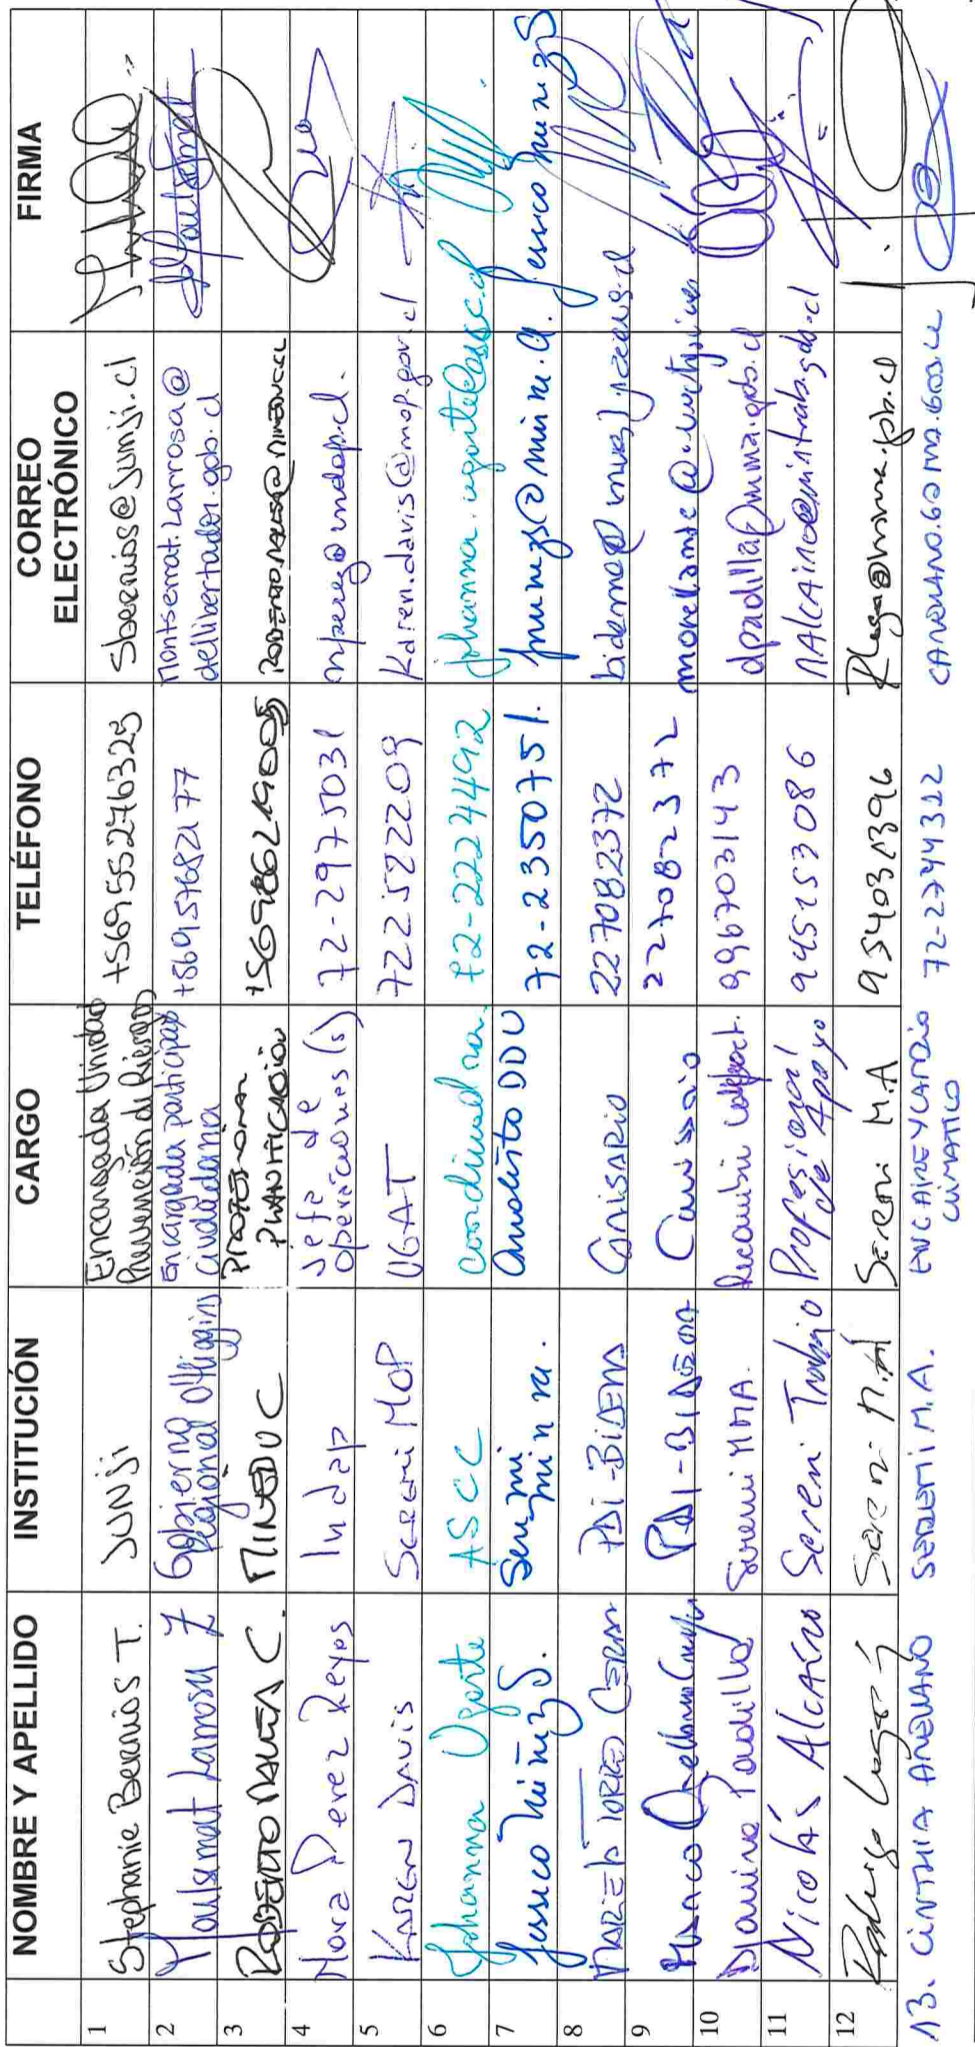 NOMBRE Y APELLIDO INSTITUCIÓN CARGO TELÉFONO CORREO ELECTRÓNICO FIRMA
1 Stephanie Berrios T. JUNJi Encargada Unidad Prevención de Riesgos +56955276325 Sberrios@junji.cl
2 Montserrat Larrosa Z Gobierno Regional O'Higgins Encargada participap ciudadana +56957682177 Montserrat.Larrosa@dellibertador.gob.cl
3 ROBERTO C. MINEDUC PROFESIONAL PLANIFICACIÓN
4 Nora Perez Reyes Indap Jefe de Operaciones (s) 72-2975031 nperez@indap.cl.
5 KAREN DAVIS SEREMI MOP UGAT 722522209 Karen.davis@mop.gov.cl
6 Johanna Ugarte ASCC coordinadora. 72-2224492 johanna.ugarte@ascc.cl
7 Jessica Núñez S. Seremi minvu. Analista DDU 72-2350751. jnunezs@minvu.cl. Jessica Nunez S
8 TORRES PDI-BIDEMA COMISARIO 227082372
9 PDI-BIDEMA Comisario 227082372
10 Padilla Seremi MMA. 996703143 dpadilla@mma.gob.cl
11 Nicolás Alcaíno Seremi Trabajo Profesional de Apoyo 945153086 nAlcaino@mintrab.gob.cl
12 Rodrigo Lagos Seremi M.A Seremi M.A Rlagos@mma.gob.cl
13. CINTHIA ARELLANO SEREMI M.A. ENC AIRE Y CAMBIO CLIMATICO 72-2744322